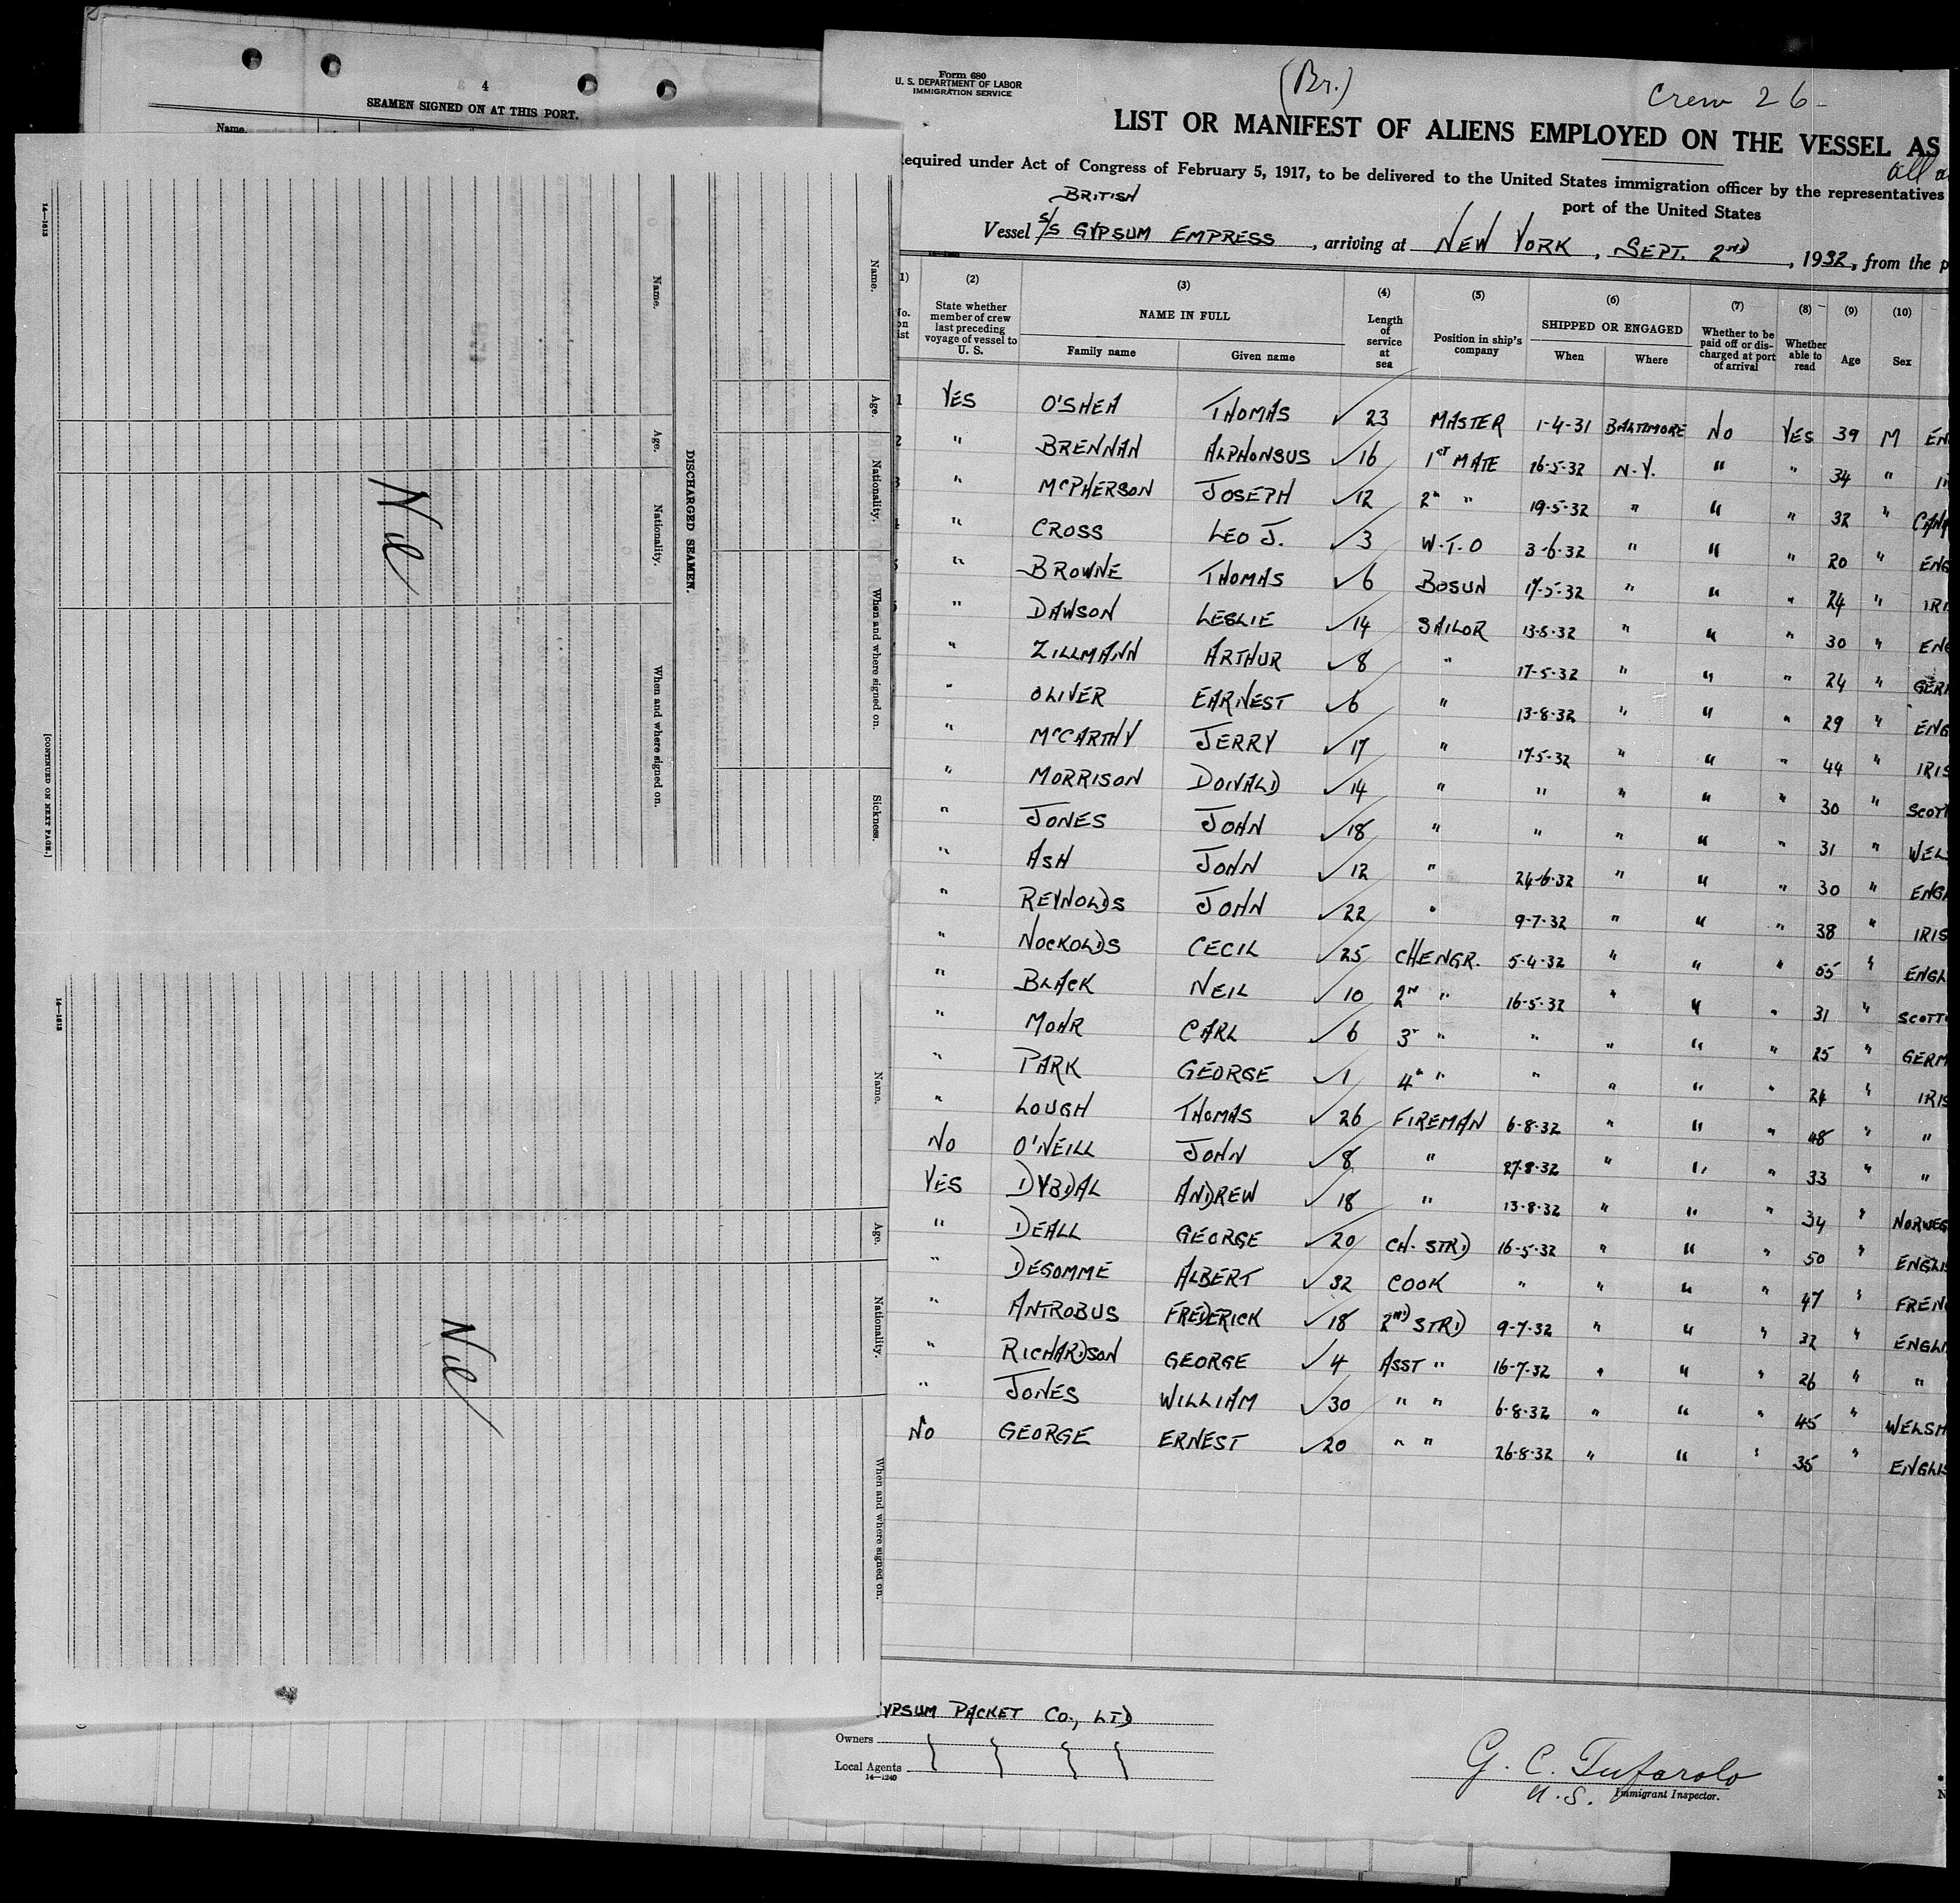 4
SEAMEN SIGNED ON AT THIS PORT.
Name.
14—1613
Name.
Age.
Nationality.
When and where signed on.
Sickness.
DISCHARGED SEAMEN.
Name.
Age.
Nationality.
When and where signed on.
Nil
[CONTINUED ON NEXT PAGE.]
14—1613
Name.
Age.
Nationality.
When and where signed on.
Nil
Form 680
U. S. DEPARTMENT OF LABOR
IMMIGRATION SERVICE
(Br.)
Crew 26-
LIST OR MANIFEST OF ALIENS EMPLOYED ON THE VESSEL AS
all
equired under Act of Congress of February 5, 1917, to be delivered to the United States immigration officer by the representatives
port of the United States
BRITISH
Vessel S/S GYPSUM EMPRESS, arriving at NEW YORK, SEPT. 2ND, 1932, from the p
1) (2) (3) (4) (5) (6) (7) (8) (9) (10)
No. on list State whether member of crew last preceding voyage of vessel to U. S. NAME IN FULL Family name Given name Length of service at sea Position in ship's company SHIPPED OR ENGAGED When Where Whether to be paid off or discharged at port of arrival Whether able to read Age Sex
1 YES O'SHEA THOMAS ✓ 23 MASTER 1-4-31 BALTIMORE NO YES 39 M EN
2 " BRENNAN ALPHONSUS ✓ 16 1ST MATE 16-5-32 N.Y. " " 34 " I
3 " McPHERSON JOSEPH ✓ 12 2" " 19-5-32 " " " 32 " CANA
" CROSS LEO J. ✓ 3 W.T.O 3-6-32 " " " 20 " ENG
" BROWNE THOMAS ✓ 6 BOSUN 17-5-32 " " " 24 " IRI
" DAWSON LESLIE ✓ 14 SAILOR 13-8-32 " " " 30 " ENG
" ZILLMANN ARTHUR ✓ 8 " 17-5-32 " " " 24 " GER
" OLIVER EARNEST ✓ 6 " 13-8-32 " " " 29 " ENG
" McCARTHY JERRY ✓ 17 " 17-5-32 " " " 44 " IRIS
" MORRISON DONALD ✓ 14 " " " " " 30 " SCOT
" JONES JOHN ✓ 18 " " " " " 31 " WEL
" ASH JOHN ✓ 12 " 24-6-32 " " " 30 " ENG
" REYNOLDS JOHN ✓ 22 " 9-7-32 " " " 38 " IRIS
" NOCKOLDS CECIL ✓ 25 CH ENGR. 5-4-32 " " " 55 " ENGL
" BLACK NEIL ✓ 10 2N " 16-5-32 " " " 31 " SCOTT
" MOHR CARL ✓ 6 3" " " " " " 25 " GERM
" PARK GEORGE ✓ 1 4" " " " " " 24 " IRIS
" LOUGH THOMAS ✓ 26 FIREMAN 6-8-32 " " " 48 " "
NO O'NEILL JOHN ✓ 8 " 27-8-32 " " " 33 " "
YES DYBDAL ANDREW ✓ 18 " 13-8-32 " " " 34 " NORWEG
" DEALL GEORGE ✓ 20 CH. STRD 16-5-32 " " " 50 " ENGLI
" DEGOMME ALBERT ✓ 32 COOK " " " " 47 " FREN
" ANTROBUS FREDERICK ✓ 18 2ND STRD 9-7-32 " " " 32 " ENGLI
" RICHARDSON GEORGE ✓ 4 ASST " 16-7-32 " " " 26 " "
" JONES WILLIAM ✓ 30 " " 6-8-32 " " " 45 " WELSH
NO GEORGE ERNEST ✓ 20 " " 26-8-32 " " " 35 " ENGLIS
YPSUM PACKET CO., LTD
Owners
Local Agents
14—1240
G. C. Tufarolo
U.S. Immigrant Inspector.